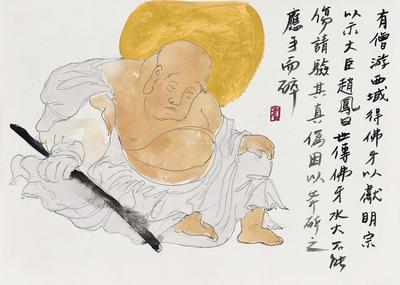 有僧游西域得佛牙以獻明宗
以示大臣趙鳳曰世傳佛牙水火不能
傷請驗其真偽因以斧斫之
應手而碎